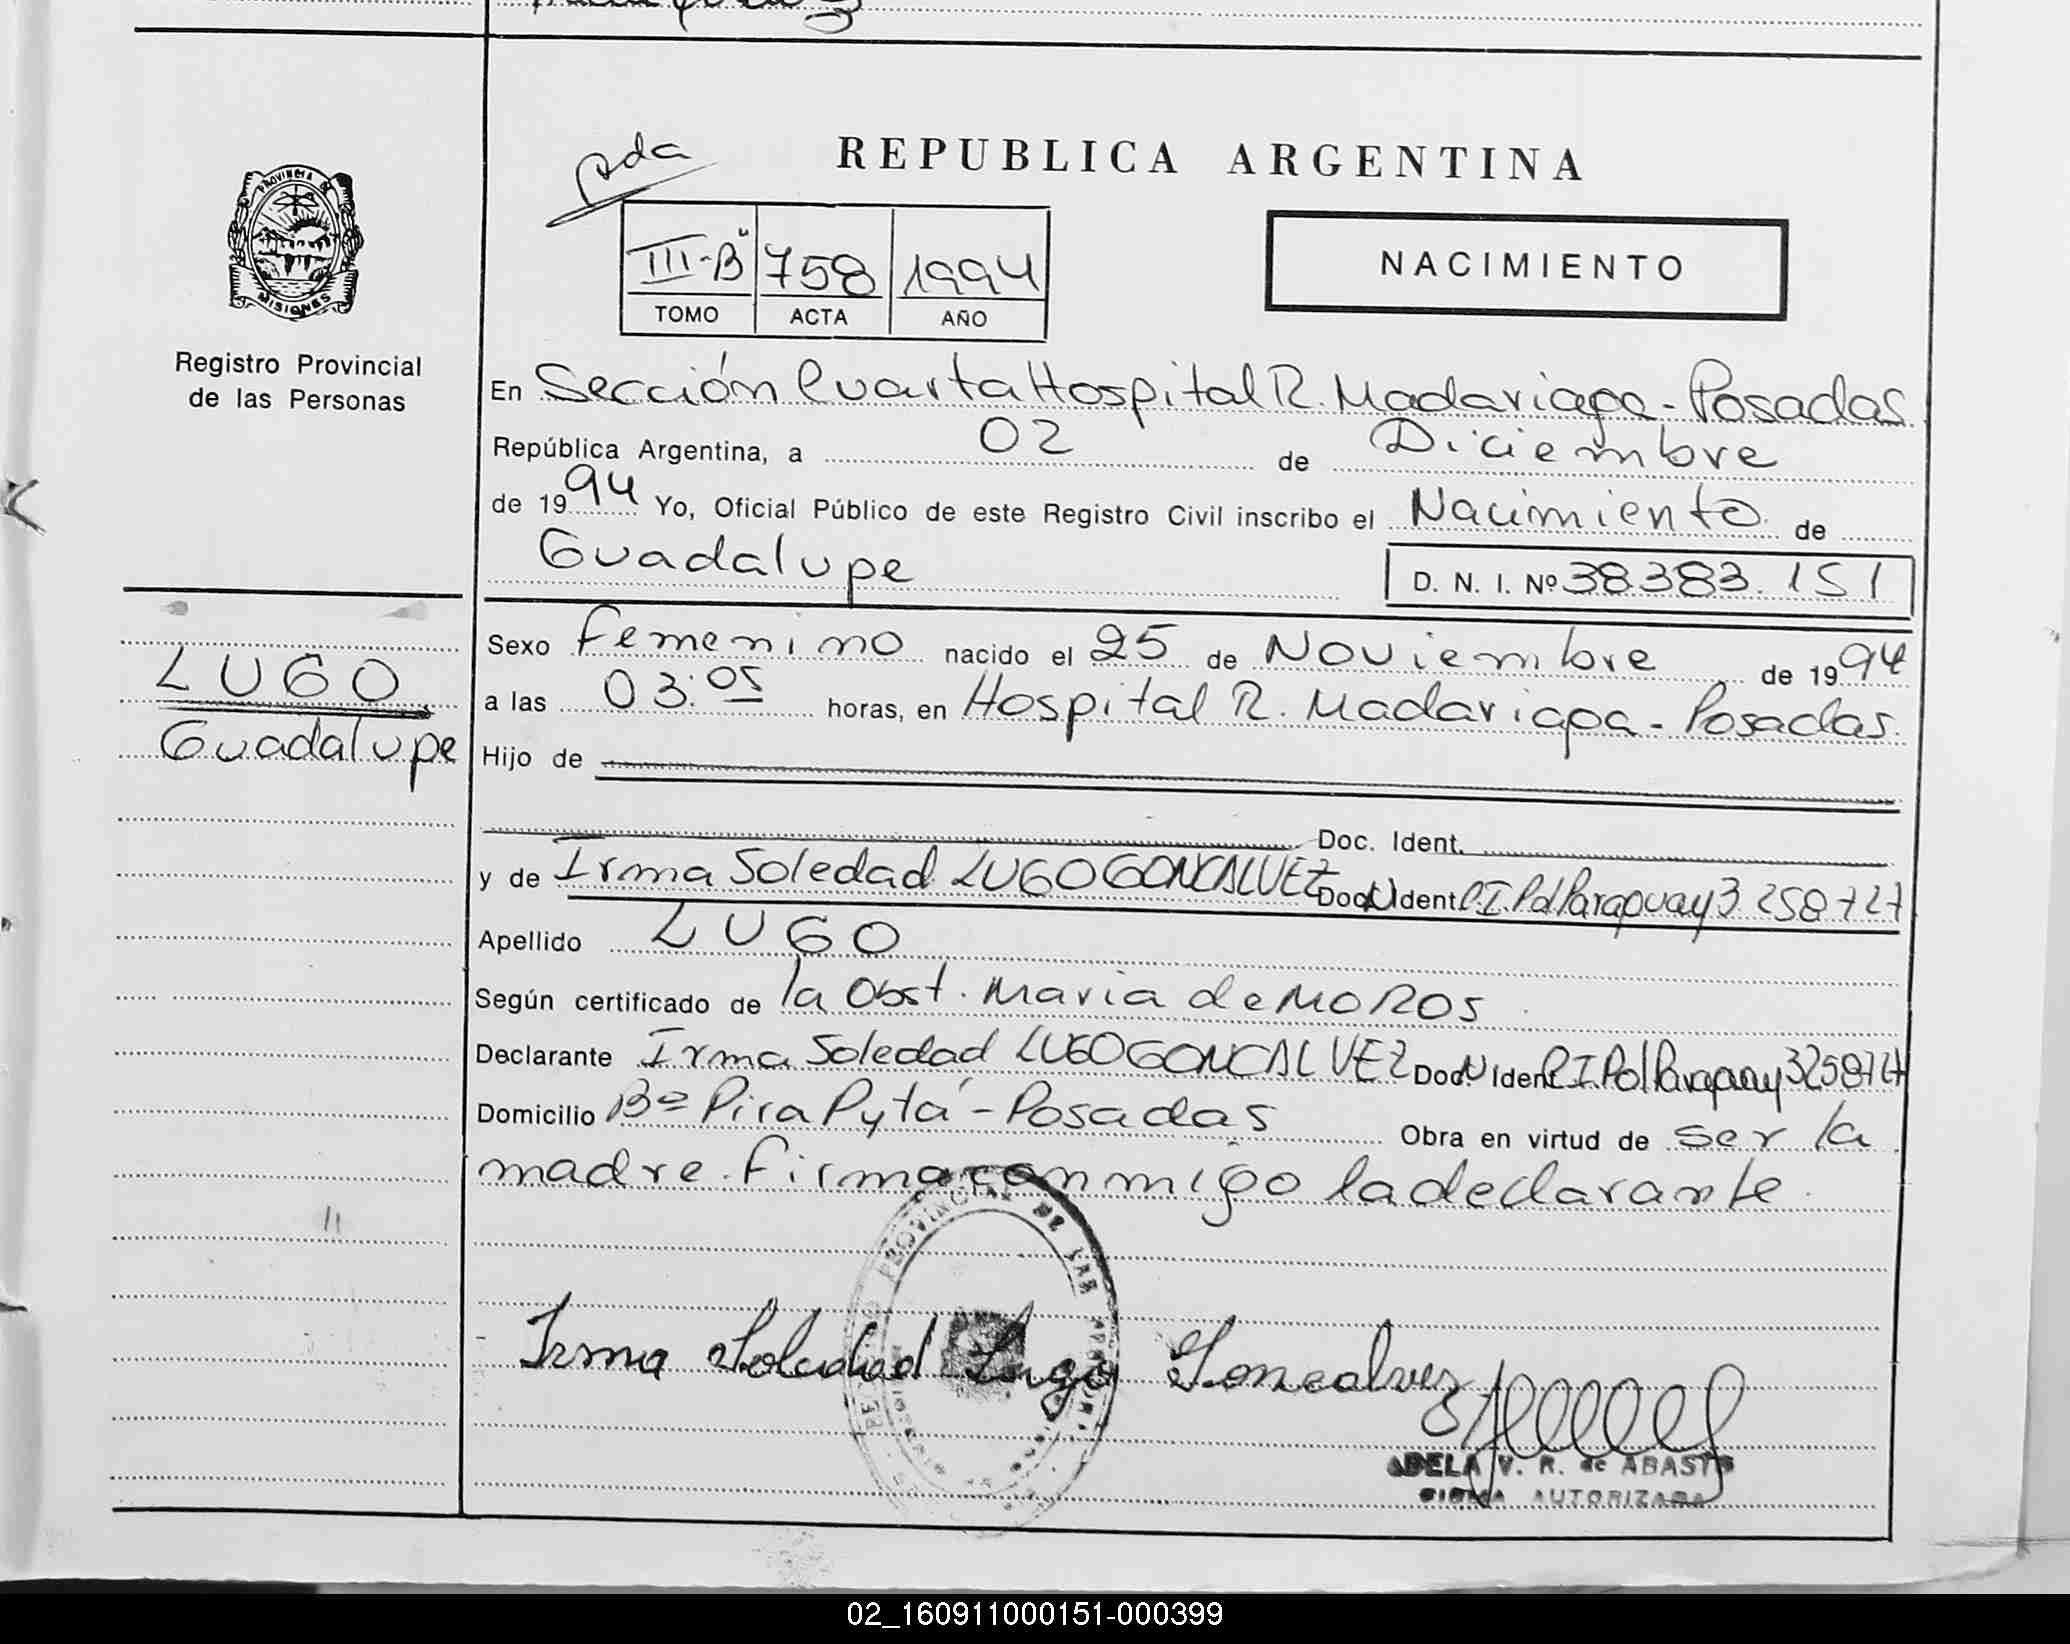 REPUBLICA ARGENTINA
PROVINCIA DE
MISIONES
Registro Provincial
de las Personas
III-B" 758 1994
TOMO ACTA AÑO
NACIMIENTO
En Sección Cuarta Hospital R. Madariaga - Posadas
República Argentina, a 02 de Diciembre
de 1994 Yo, Oficial Público de este Registro Civil inscribo el Nacimiento de
Guadalupe D. N. I. Nº 38.383.151
LUGO
Guadalupe
Sexo femenino nacido el 25 de Noviembre de 1994
a las 03:05 horas, en Hospital R. Madariaga - Posadas.
Hijo de
Doc. Ident.
y de Irma Soledad LUGO GONCALVEZ Doc. Ident C.I. Pol Paraguay 3258727
Apellido LUGO
Según certificado de la Obst. Maria de MOROS
Declarante Irma Soledad LUGO GONCALVEZ Doc. Ident C.I. Pol Paraguay 3258727
Domicilio Bº Pira Pytá - Posadas Obra en virtud de ser la
madre. firma conmigo la declarante.
PROVINCIAL DE LAS
Irma Soledad Lugo Goncalvez
ADELA V. R. de ABASTO
FIRMA AUTORIZADA
02_160911000151-000399